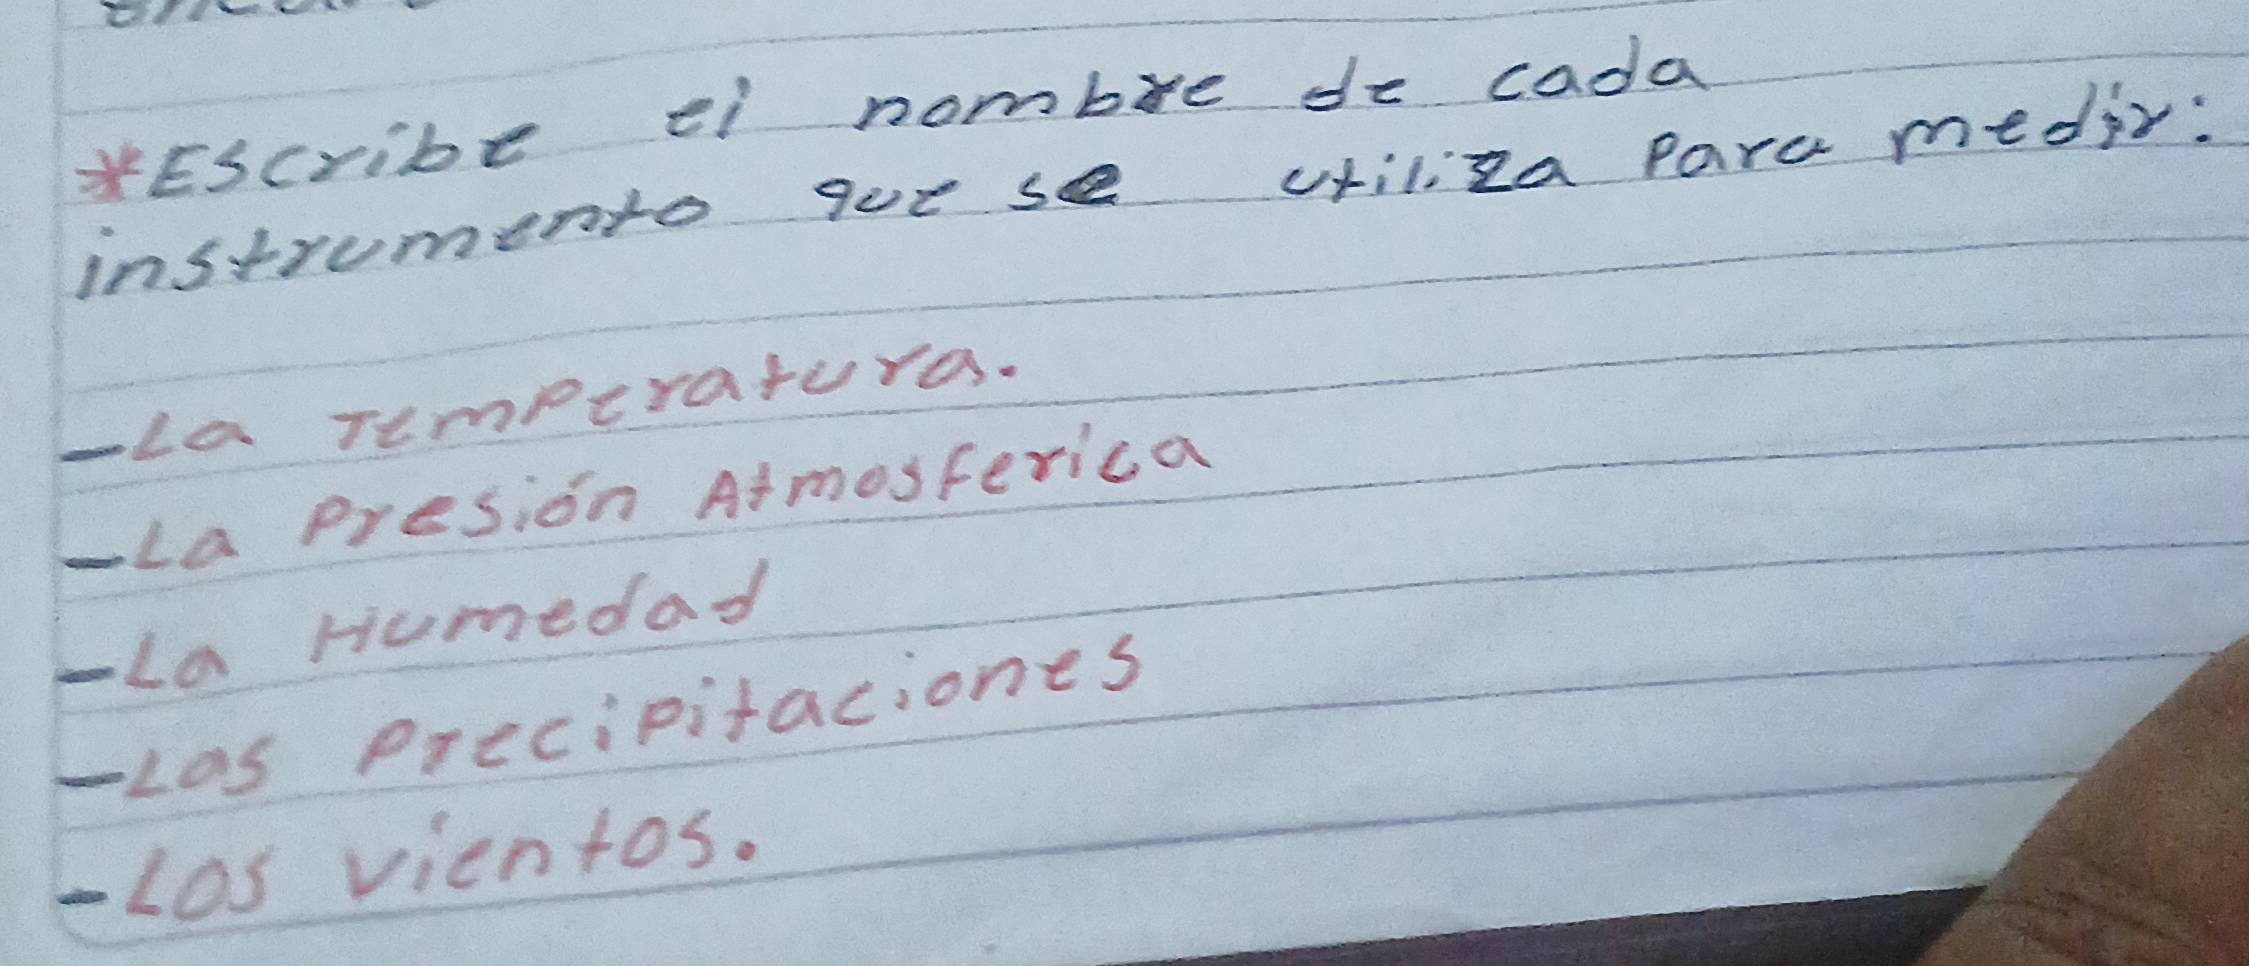 *Escribe el nombre de cada
instrumento que se utiliza Para medir:
-La Temperatura.
-La Presión Atmosferica
-La Humedad
-Las Precipitaciones
-Los vientos.